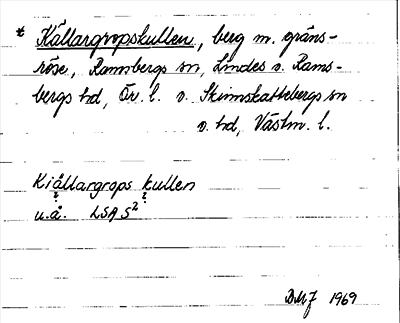 * Källargropskullen, berg m. gräns-
röse, Ramsbergs sn, Lindes o. Rams-
bergs hd, Ör. l. o. Skinnskattebergs sn
o. hd, Västm. l.
Kiällargrops kullen
? ?
u.å. LSA S2
DMJ 1969